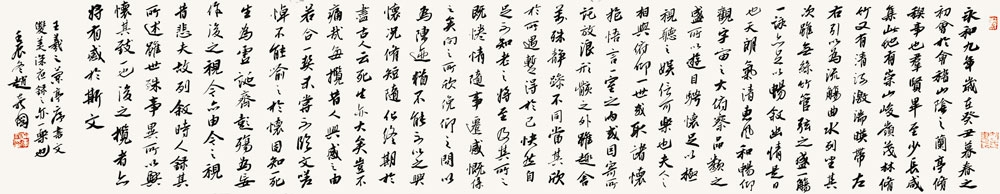 永和九年歲在癸丑暮春之
初會於會稽山陰之蘭亭脩
禊事也群賢畢至少長咸
集此地有崇山峻嶺茂林脩
竹又有清流激湍暎帶左
右引以為流觴曲水列坐其
次雖無絲竹管弦之盛一觴
一詠亦足以暢敘幽情是日
也天朗氣清惠風和暢仰
觀宇宙之大俯察品類之
盛所以遊目騁懷足以極
視聽之娛信可樂也夫人之
相與俯仰一世或取諸懷
抱悟言一室之內或因寄所
託放浪形骸之外雖趣舍
萬殊靜躁不同當其欣
於所遇暫得於己快然自
足不知老之將至及其所之
既惓情隨事遷感慨係
之矣向之所欣俛仰之間以
為陳迹猶不能不以之興
懷況脩短隨化終期於
盡古人云死生亦大矣豈不
痛哉每攬昔人興感之由
若合一契未嘗不臨文嗟
悼不能喻之於懷固知一死
生為虛誕齊彭殤為妄
作後之視今亦由今之視
昔悲夫故列敘時人錄其
所述雖世殊事異所以興
懷其致一也後之攬者亦
將有感於斯文
王羲之蘭亭序書文
雙美深夜錄之亦樂也
壬辰冬趙國